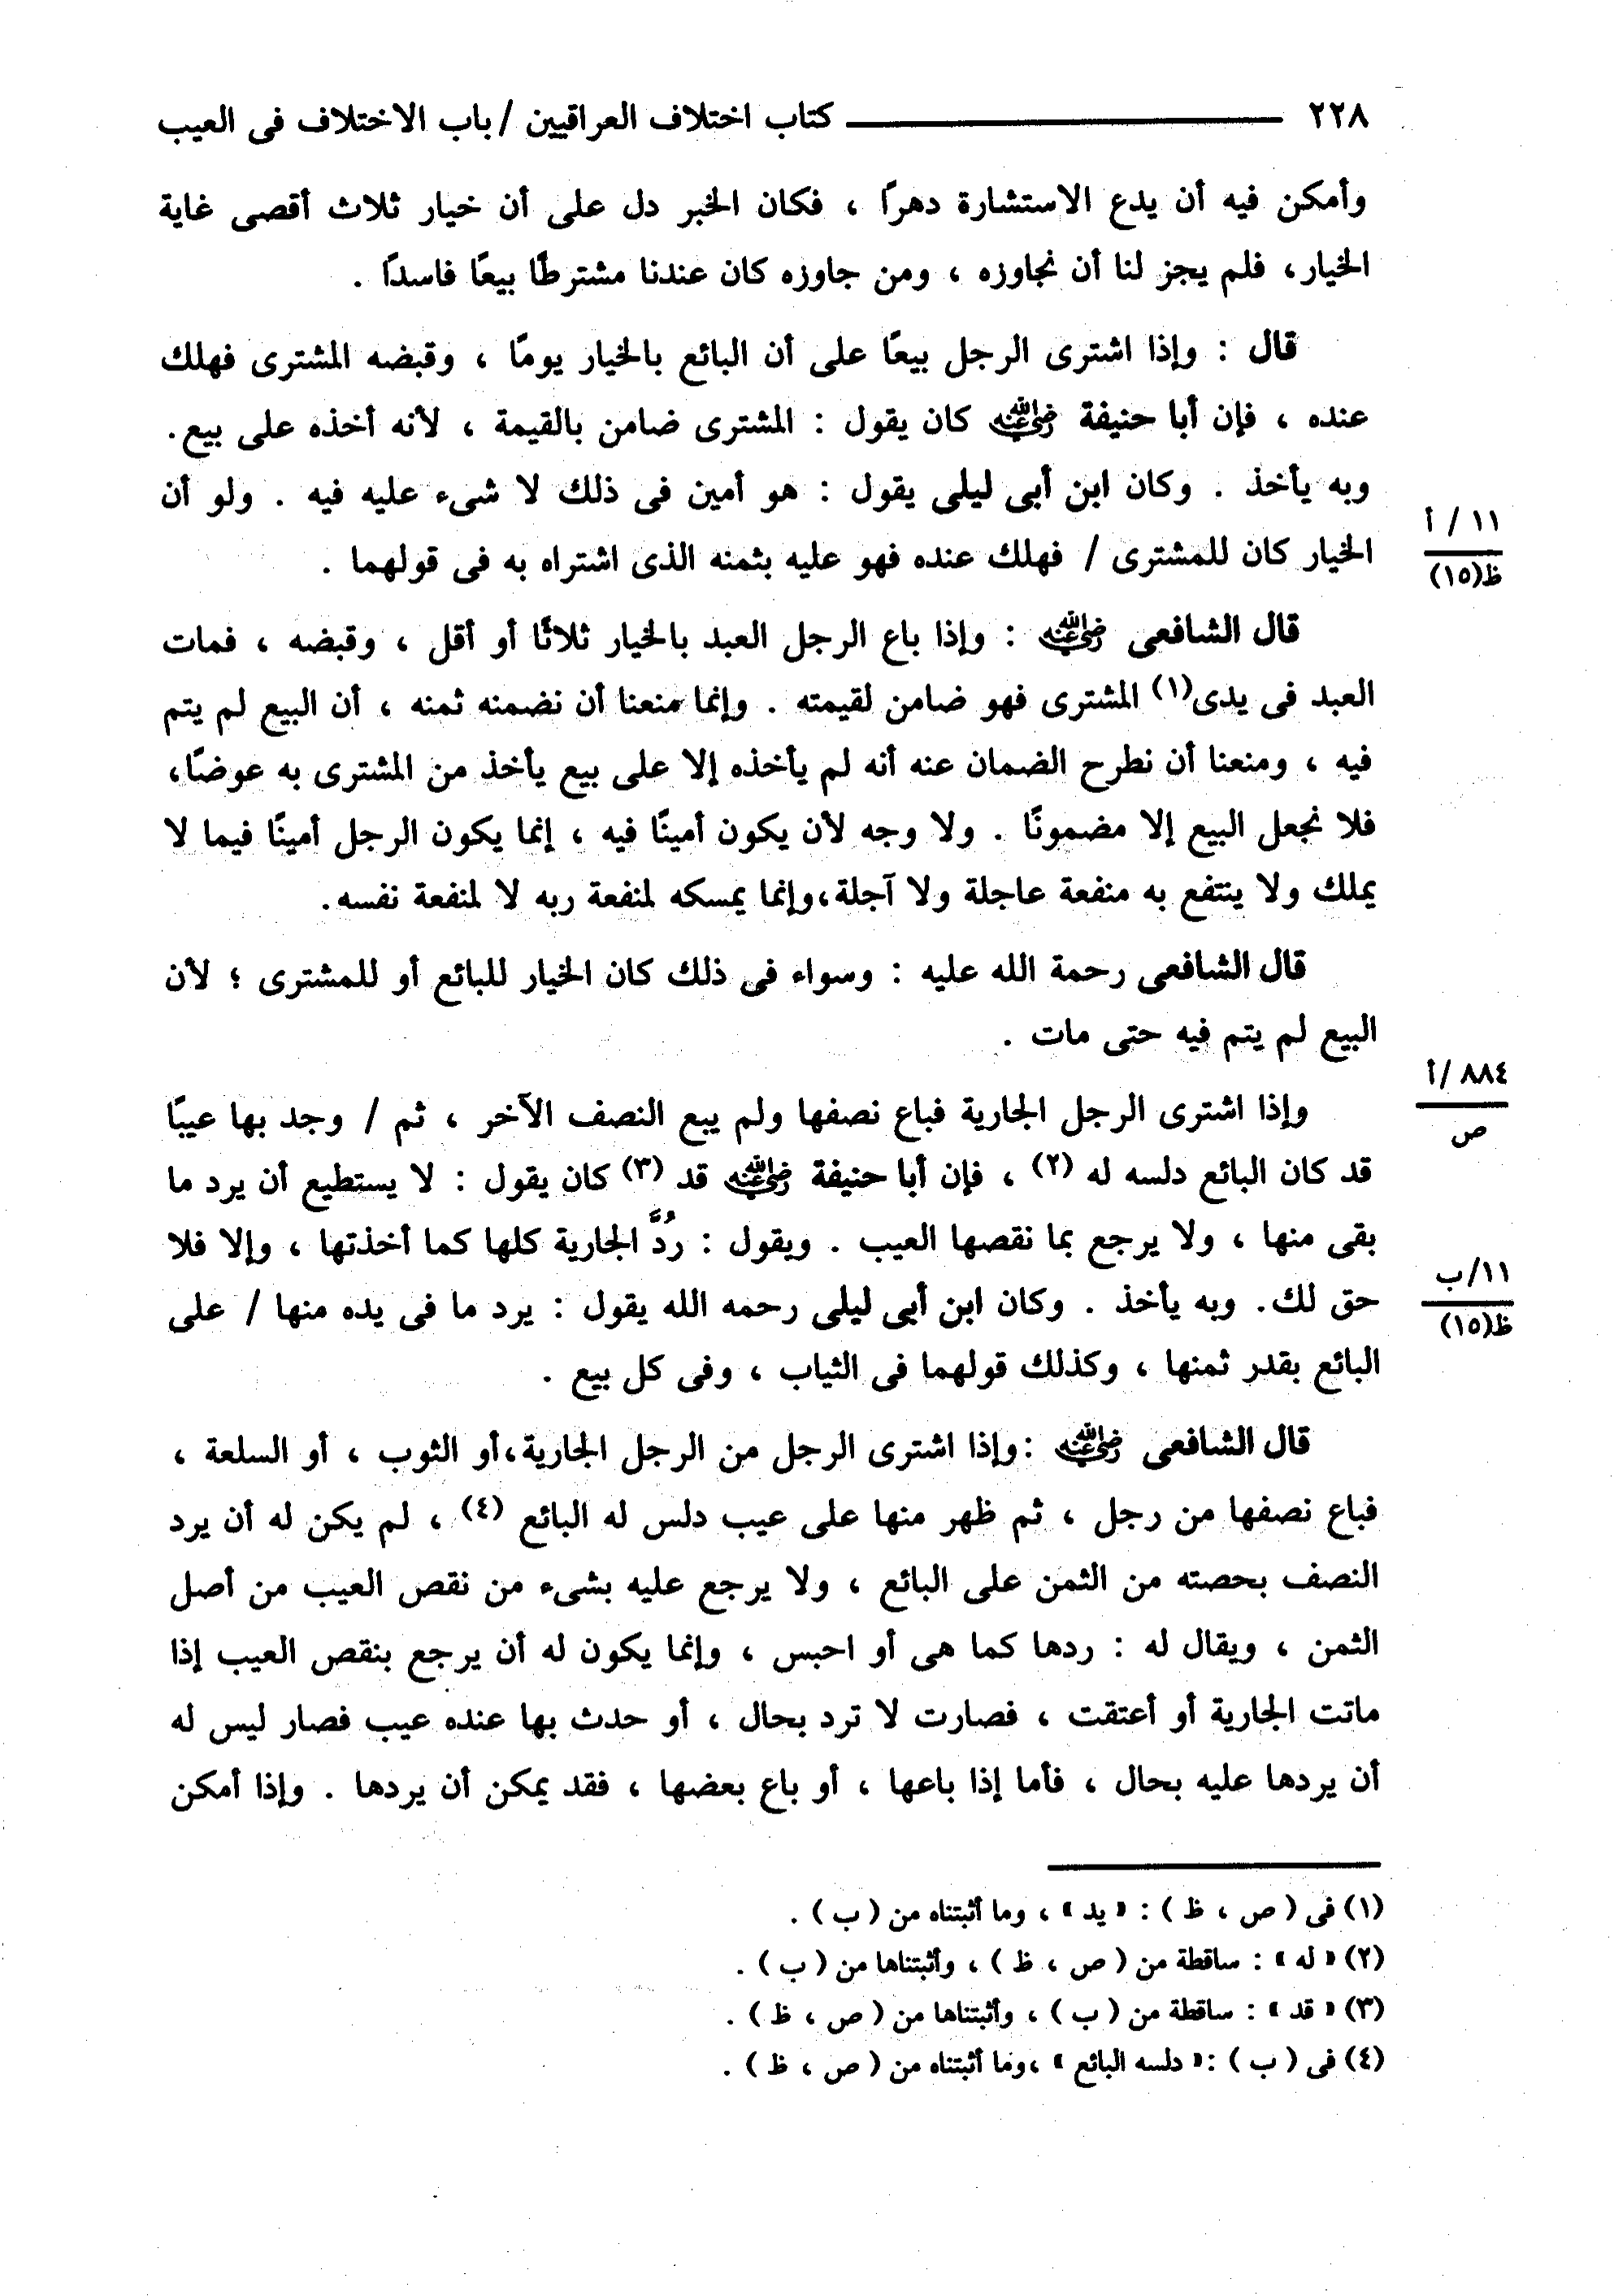 ٢٢٨ كتاب اختلاف العراقيين / باب الاختلاف فى العيب
وأمكن فيه أن يدع الاستشارة دهرًا ، فكان الخبر دل على أن خيار ثلاث أقصى غاية
الخيار، فلم يجز لنا أن نجاوزه ، ومن جاوزه كان عندنا مشترطًا بيعًا فاسدًا .
قال : وإذا اشترى الرجل بيعًا على أن البائع بالخيار يومًا ، وقبضه المشترى فهلك
عنده ، فإن أبا حنيفة رضي الله عنه كان يقول : المشترى ضامن بالقيمة ، لأنه أخذه على بيع.
وبه يأخذ . وكان ابن أبى ليلى يقول : هو أمين فى ذلك لا شىء عليه فيه . ولو أن
١١ / أ
الخيار كان للمشترى / فهلك عنده فهو عليه بثمنه الذى اشتراه به فى قولهما .
ظ(١٥)
قال الشافعى رضي الله عنه : وإذا باع الرجل العبد بالخيار ثلاثًا أو أقل ، وقبضه ، فمات
العبد فى يدى(١) المشترى فهو ضامن لقيمته . وإنما منعنا أن نضمنه ثمنه ، أن البيع لم يتم
فيه ، ومنعنا أن نطرح الضمان عنه أنه لم يأخذه إلا على بيع يأخذ من المشترى به عوضًا،
فلا نجعل البيع إلا مضمونًا . ولا وجه لأن يكون أمينًا فيه ، إنما يكون الرجل أمينًا فيما لا
يملك ولا ينتفع به منفعة عاجلة ولا آجلة،وإنما يمسكه لمنفعة ربه لا لمنفعة نفسه.
قال الشافعى رحمة الله عليه : وسواء فى ذلك كان الخيار للبائع أو للمشترى ؛ لأن
البيع لم يتم فيه حتى مات .
٨٨٤ /أ
ص
وإذا اشترى الرجل الجارية فباع نصفها ولم يبع النصف الآخر ، ثم / وجد بها عيبًا
قد كان البائع دلسه له (٢) ، فإن أبا حنيفة رضي الله عنه قد (٣) كان يقول : لا يستطيع أن يرد ما
بقى منها ، ولا يرجع بما نقصها العيب . ويقول : رُدَّ الجارية كلها كما أخذتها ، وإلا فلا
١١/ب
حق لك. وبه يأخذ . وكان ابن أبى ليلى رحمه الله يقول : يرد ما فى يده منها / على
ظ(١٥)
البائع بقدر ثمنها ، وكذلك قولهما فى الثياب ، وفى كل بيع .
قال الشافعى رضي الله عنه :وإذا اشترى الرجل من الرجل الجارية،أو الثوب ، أو السلعة ،
فباع نصفها من رجل ، ثم ظهر منها على عيب دلس له البائع (٤) ، لم يكن له أن يرد
النصف بحصته من الثمن على البائع ، ولا يرجع عليه بشىء من نقص العيب من أصل
الثمن ، ويقال له : ردها كما هى أو احبس ، وإنما يكون له أن يرجع بنقص العيب إذا
ماتت الجارية أو أعتقت ، فصارت لا ترد بحال ، أو حدث بها عنده عيب فصار ليس له
أن يردها عليه بحال ، فأما إذا باعها ، أو باع بعضها ، فقد يمكن أن يردها . وإذا أمكن
(١) فى ( ص ، ظ ) : « يد » ، وما أثبتناه من ( ب ) .
(٢) « له » : ساقطة من ( ص ، ظ ) ، وأثبتناها من ( ب ) .
(٣) « قد » : ساقطة من ( ب ) ، وأثبتناها من ( ص ، ظ ) .
(٤) فى ( ب ) :« دلسه البائع » ،وما أثبتناه من ( ص ، ظ ) .